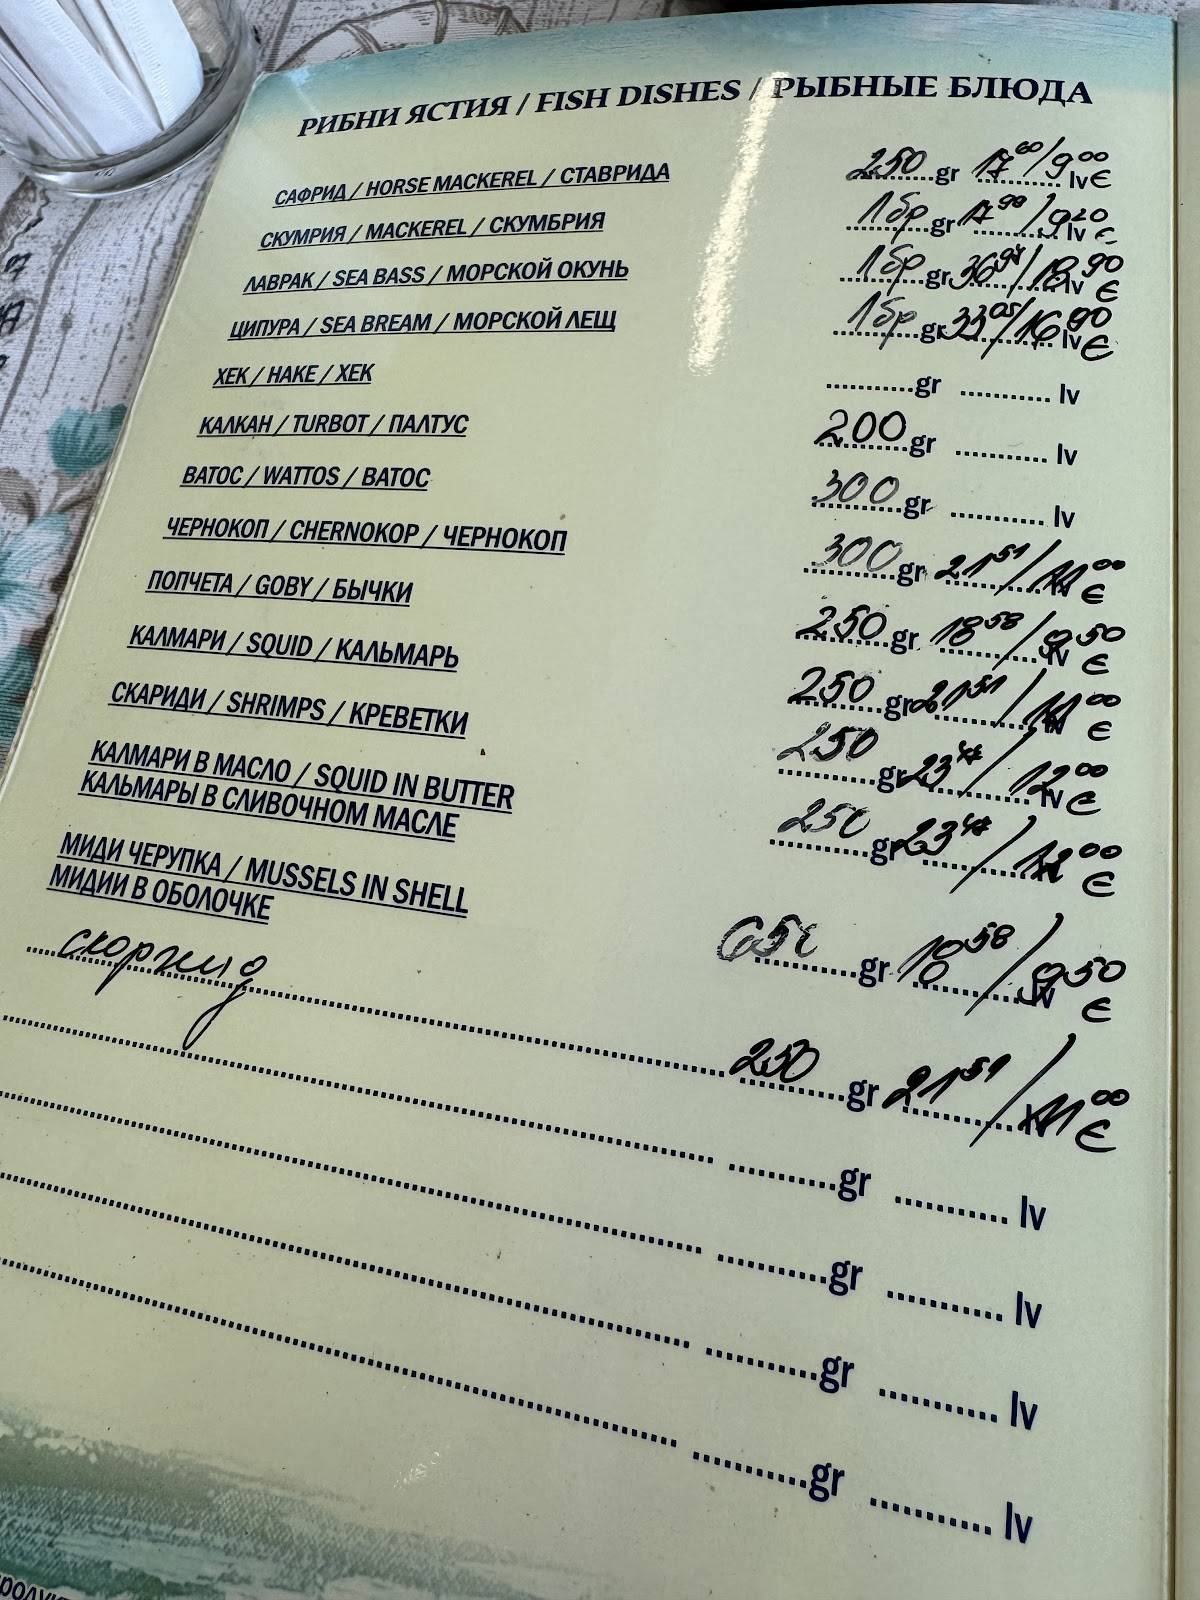 РИБНИ ЯСТИЯ / FISH DISHES / РЫБНЫЕ БЛЮДА
САФРИД / HORSE MACKEREL / СТАВРИДА 250 gr 17 60 / 9 00 lv €
СКУМРИЯ / MACKEREL / СКУМБРИЯ 1 бр gr 17 99 / 9 20 lv €
ЛАВРАК / SEA BASS / МОРСКОЙ ОКУНЬ 1 бр gr 36 97 / 18 90 lv €
ЦИПУРА / SEA BREAM / МОРСКОЙ ЛЕЩ 1 бр gr 33 05 / 16 90 lv €
ХЕК / HAKE / ХЕК ........... gr ........... lv
КАЛКАН / TURBOT / ПАЛТУС 200 gr ........... lv
ВАТОС / WATTOS / ВАТОС 300 gr ........... lv
ЧЕРНОКОП / CHERNOKOP / ЧЕРНОКОП 300 gr 21 51 / 11 00 lv €
ПОПЧЕТА / GOBY / БЫЧКИ 250 gr 18 58 / 9 50 lv €
КАЛМАРИ / SQUID / КАЛЬМАРЬ 250 gr 21 51 / 11 00 lv €
СКАРИДИ / SHRIMPS / КРЕВЕТКИ 250 gr 23 47 / 12 00 lv €
КАЛМАРИ В МАСЛО / SQUID IN BUTTER 250 gr 23 47 / 12 00 €
КАЛЬМАРЫ В СЛИВОЧНОМ МАСЛЕ
МИДИ ЧЕРУПКА / MUSSELS IN SHELL 650 gr 18 58 / 9 50 lv €
МИДИИ В ОБОЛОЧКЕ
250 gr 21 51 / 11 00 lv €
........... gr ........... lv
........... gr ........... lv
........... gr ........... lv
........... gr ........... lv